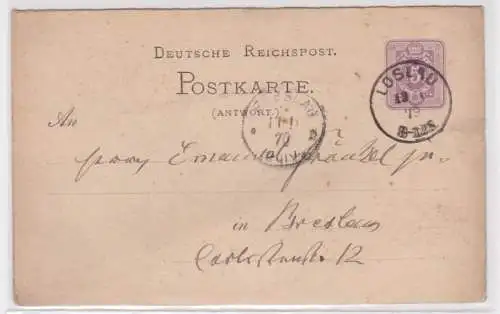 DEUTSCHE REICHSPOST.
POSTKARTE.
(ANTWORT.)
LOSLAU
79
8-12N
An
Emanuel Fränkel jr.
in Breslau
Carlsstraße 12